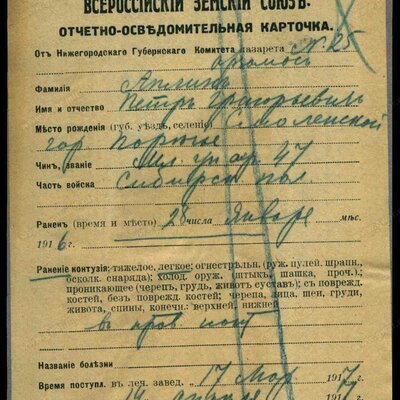 ВСЕРОССІЙСКІЙ ЗЕМСКІЙ СОЮЗЪ.
ОТЧЕТНО-ОСВѢДОМИТЕЛЬНАЯ КАРТОЧКА.
Отъ Нижегородскаго Губернскаго Комитета лазарета № 25
Фамилія
Имя и отчество Петръ Григорьевичъ
Мѣсто рожденія (губ. уѣздъ, селеніе) Смоленской
гор
Чинъ, званіе Мл. унт ар. 47
Часть войска Сибирск пол
Раненъ (время и мѣсто) 28 числа Января мѣс.
1916 г.
Раненіе контузія: тяжелое, легкое; огнестрѣльн. (руж. пулей. шрапн.,
осколк. снаряда); холод. оруж. штыкъ, шашка, проч.);
проникающее (черепъ, грудь, животъ суставъ); съ поврежд.
костей, безъ поврежд. костей; черепа, лица, шеи, груди,
живота, спины, конечн.: верхней, нижней
Названіе болѣзни
Время поступл. въ леч. завед. 17 Мар 1917 г.
14 апрѣля 1917